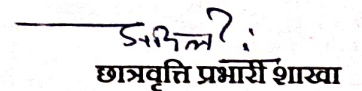 छात्रवृत्ति प्रभारी शाखा